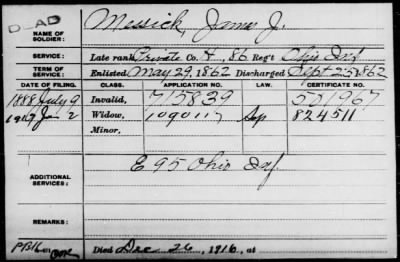 DEAD
NAME OF SOLDIER: Messick, James J.
SERVICE: Late rank Private Co. H, 86 Reg't Ohio Inf
TERM OF SERVICE: Enlisted May 29, 1862 Discharged Sept 25 1862
DATE OF FILING. CLASS. APPLICATION NO. LAW. CERTIFICATE NO.
1888 July 9 Invalid, 715839 501967
1917 Jan 2 Widow, 1090117 824511
Minor,
ADDITIONAL SERVICES: E 95 Ohio Inf.
REMARKS:
Died Dec 26, 1916, at